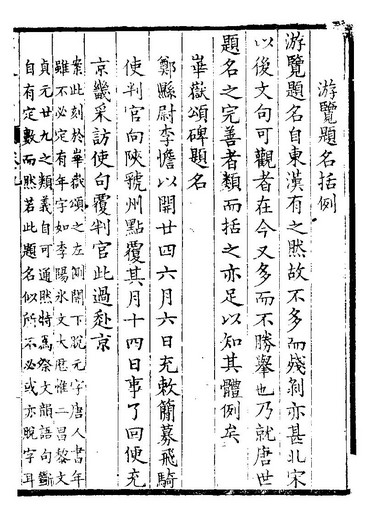 游覽題名括例
游覽題名自東漢有之然故不多而殘剝亦甚北宋
以後文句可觀者在今又多而不勝舉也乃就唐世
題名之完善者類而括之亦足以知其體例矣
華嶽頌碑題名
鄭縣尉李憺以開廿四六月六日充敕簡募飛騎
使判官向陝虢州點覆其月十四日事了回使充
京畿采訪使句覆判官此過赴京
案此刻於華嶽頌之左側開下脫元字唐人書年
雖不必定有年字如李陽冰文大厯惟二昌黎文
貞元廿九之類義自可通然特爲祭文韻語句斷
自有定數而然若此題名似所不必或亦脫字耳